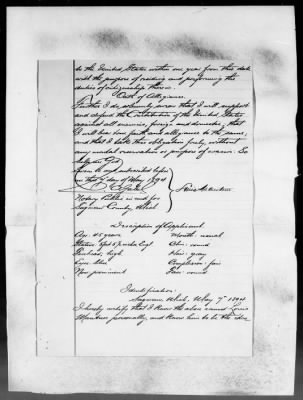 to the United States within one year from this date
with the purpose of residing and performing the
duties of citizenship therein.
Oath of Allegiance.
Further I do solemnly swear that I will support
and defend the Constitution of the United States
against all enemies, foreign and domestic; that
I will bear true faith and allegiance to the same;
and that I take this obligation freely, without
any mental reservation or purpose of evasion: So
help me God.
Sworn to and subscribed before
me this 7 day of May 1894
Notary Public in and for
Saginaw County, Mich.
Description of Applicant
Age: 45 years Mouth: usual
Stature: 5 feet 5 inches, Eng. Chin: round
Forehead: high Hair: gray
Eyes: blue Complexion: fair
Nose: prominent Face: round
Identification.
Saginaw, Mich. May 7" 1894
I hereby certify that I know the above named Louis
personally, and know him to be the